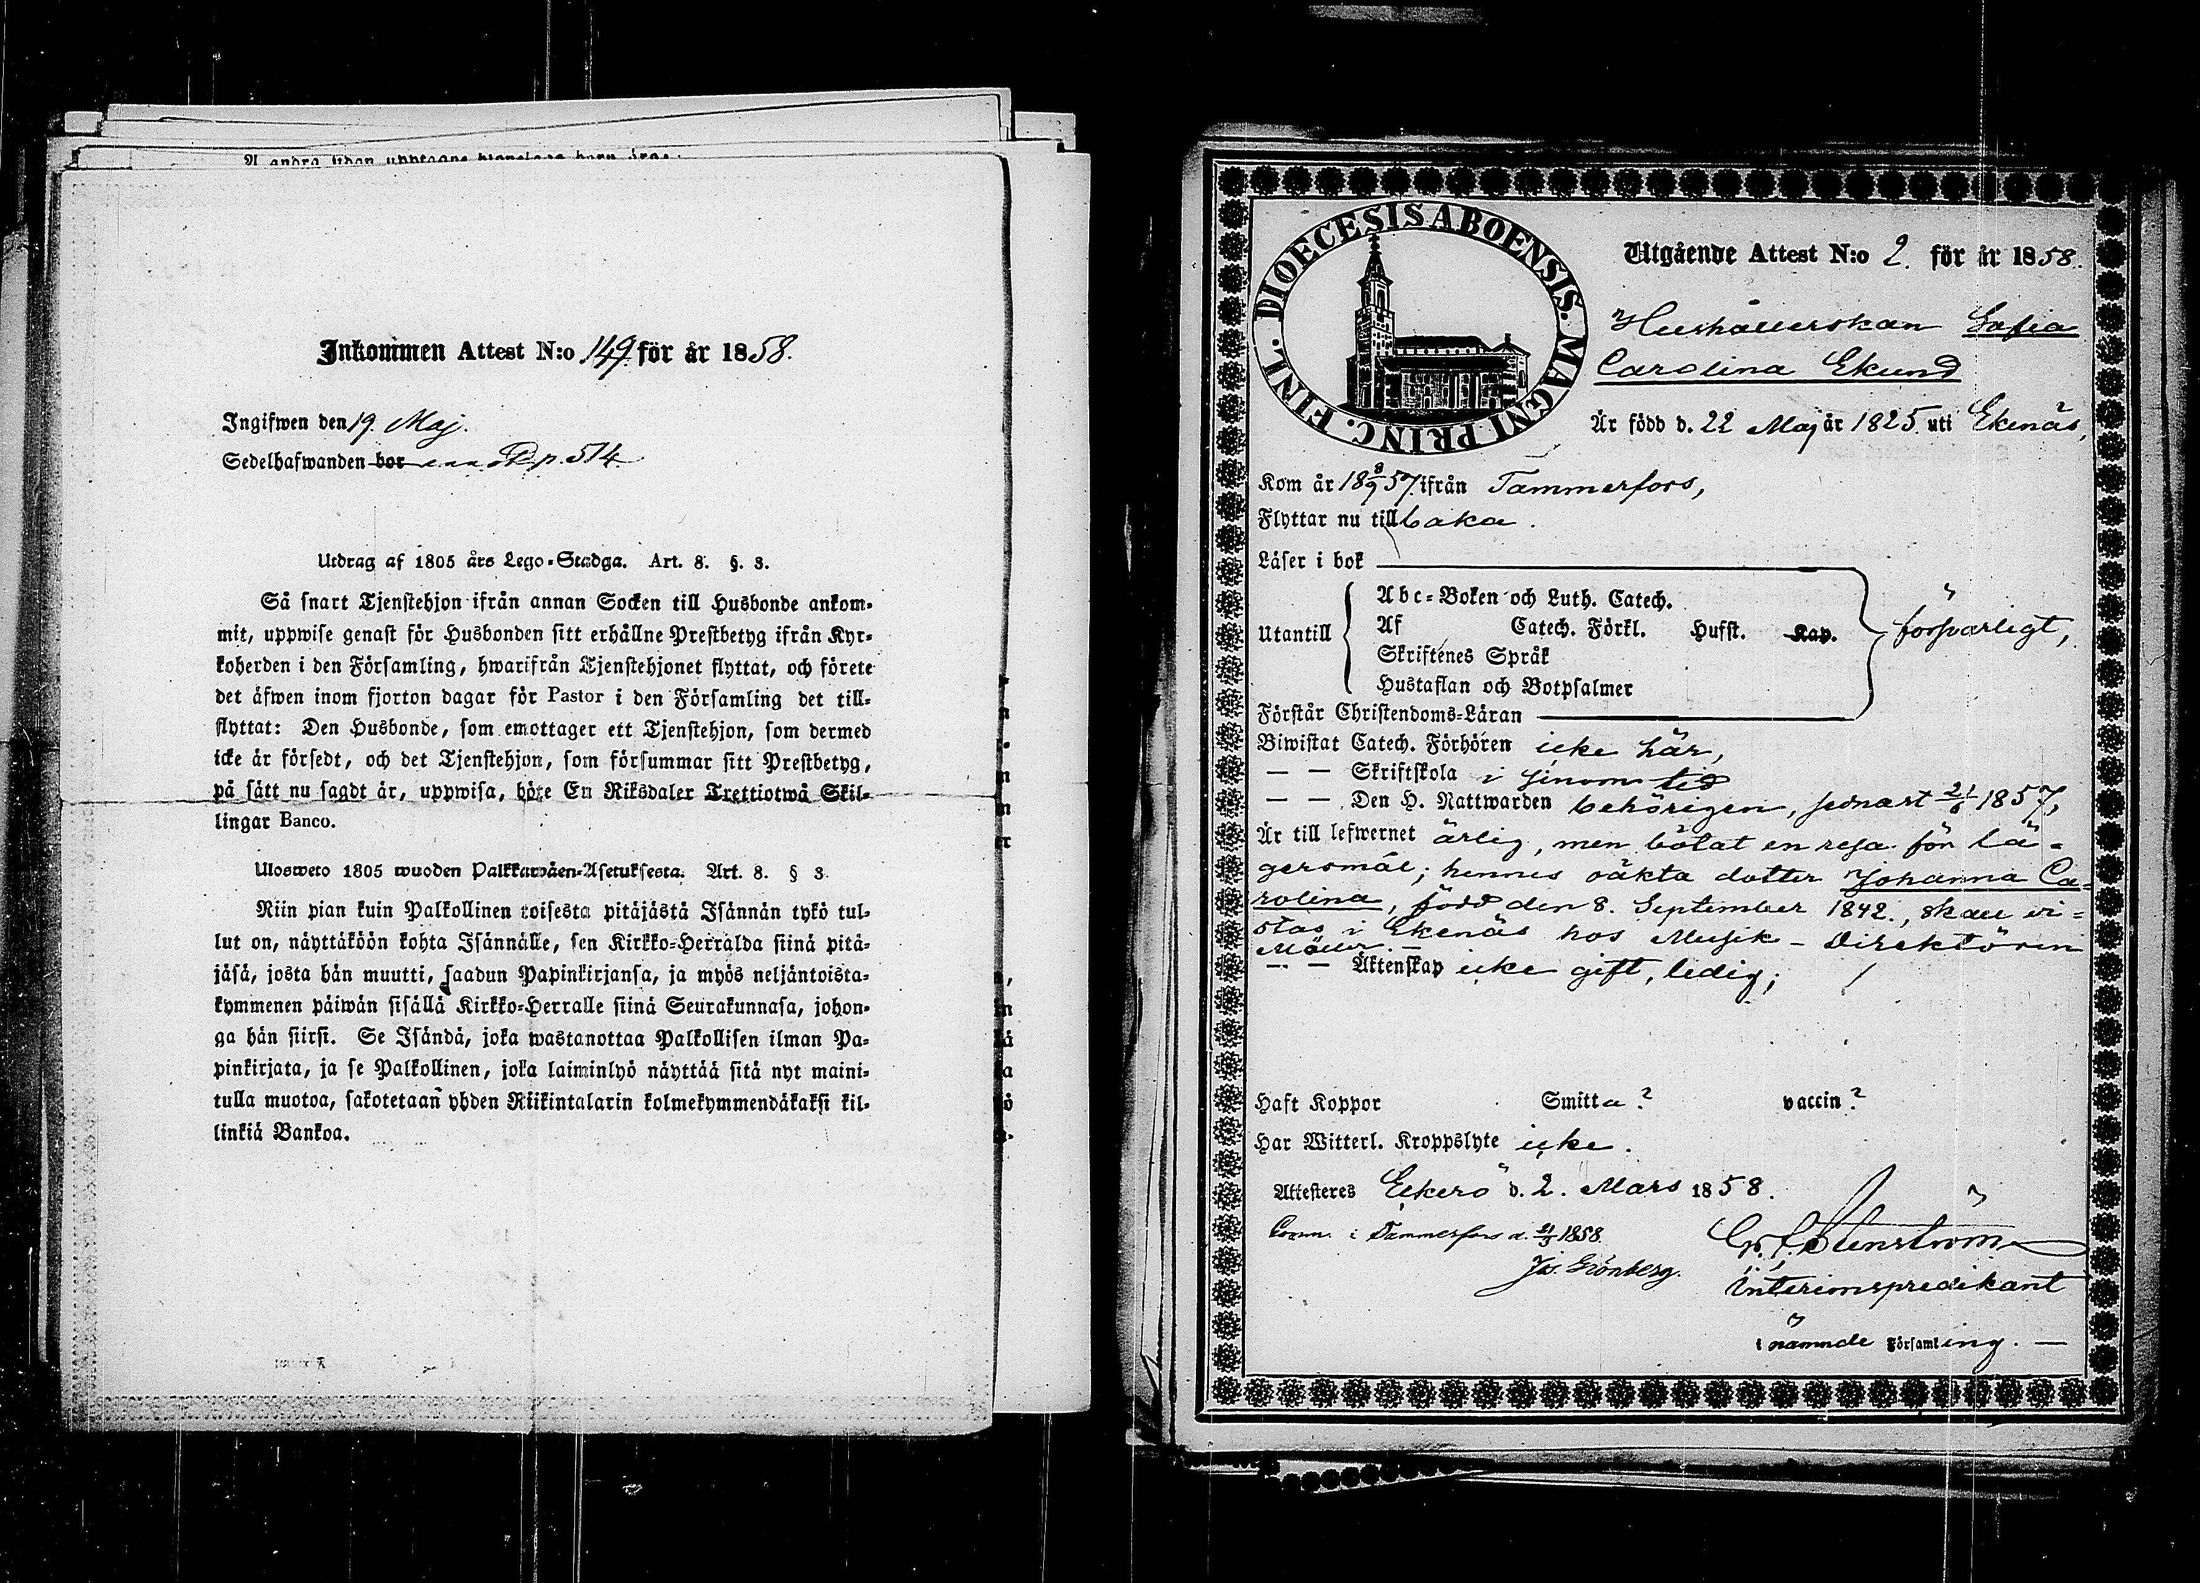 Inkommen Attest N:o 149. för år 1858.
Ingifwen den 19. Maj.
Sedelhafwanden bor p. 514
Utdrag af 1805 års Lego-Stadga. Art. 8. §. 3.
Så snart Tjenstehjon ifrån annan Socken till Husbonde ankom-
mit, uppwise genast för Husbonden sitt erhållne Prestbetyg ifrån Kyr-
koherden i den Församling, hwarifrån Tjenstehjonet flyttat, och förete
det äfwen inom fjorton dagar för Pastor i den Församling det till-
flyttat: Den Husbonde, som emottager ett Tjenstehjon, som dermed
icke är försedt, och det Tjenstehjon, som försummar sitt Prestbetyg,
på sätt nu sagdt är, uppwisa, böte En Riksdaler Trettiotwå Skil-
lingar Banco.
Ulosweto 1805 wuoden Palkkawäen-Asetuksesta. Art. 8. § 3.
Niin pian kuin Palkollinen toisesta pitäjästä Isännän tykö tul-
lut on, näyttäköön kohta Isännälle, sen Kirkko-Herralda siinä pitä-
jäsä, josta hän muutti, saadun Papinkirjansa, ja myös neljäntoista-
kymmenen päiwän sisällä Kirkko-Herralle siinä Seurakunnasa, johon-
ga hän siirsi. Se Isändä, joka wastanottaa Palkollisen ilman Pa-
pinkirjata, ja se Palkollinen, joka laiminlyö näyttää sitä nyt maini-
tulla muotoa, sakotetaan yhden Riikintalarin kolmekymmendäkaksi kil-
linkiä Bankoa.
DIOECESIS ABOENSIS. MAGNI PRINC. FINL.
Utgående Attest N:o 2. för år 1858.
Hushållerskan Sofia
Carolina Ekund
Är född d. 22 Maj år 1825 uti Ekenäs,
Kom år 18 8/9 57. ifrån Tammerfors,
Flyttar nu tillbaka.
Läser i bok
Utantill
Abc-Boken och Luth. Catech.
Af Catech. Förkl. Hufst. Kap.
Skriftenes Språk
Hustaflan och Botpsalmer
försvarligt,
Förstår Christendoms-Läran
Biwistat Catech. Förhören icke här,
— — Skriftskola i sinom tid
— — Den H. Nattwarden behörigen, sednast 21/6 1857,
Är till lefwernet ärlig, men bötat en resa för lä-
gersmål; hennes oäkta dotter Johanna Ca-
rolina, född den 8. September 1842., skall vi-
stas i Ekenäs hos Musik-Direktören
Möller. —
— — Äktenskap icke gift, ledig;
Haft Koppor Smitta? vaccin?
Har Witterl. Kroppslyte icke.
Attesteres Eckerö d. 2. Mars 1858.
i Tammerfors d. 1858.
Grönberg.
Stenström
Interimspredikant
i nämnde Församling. —